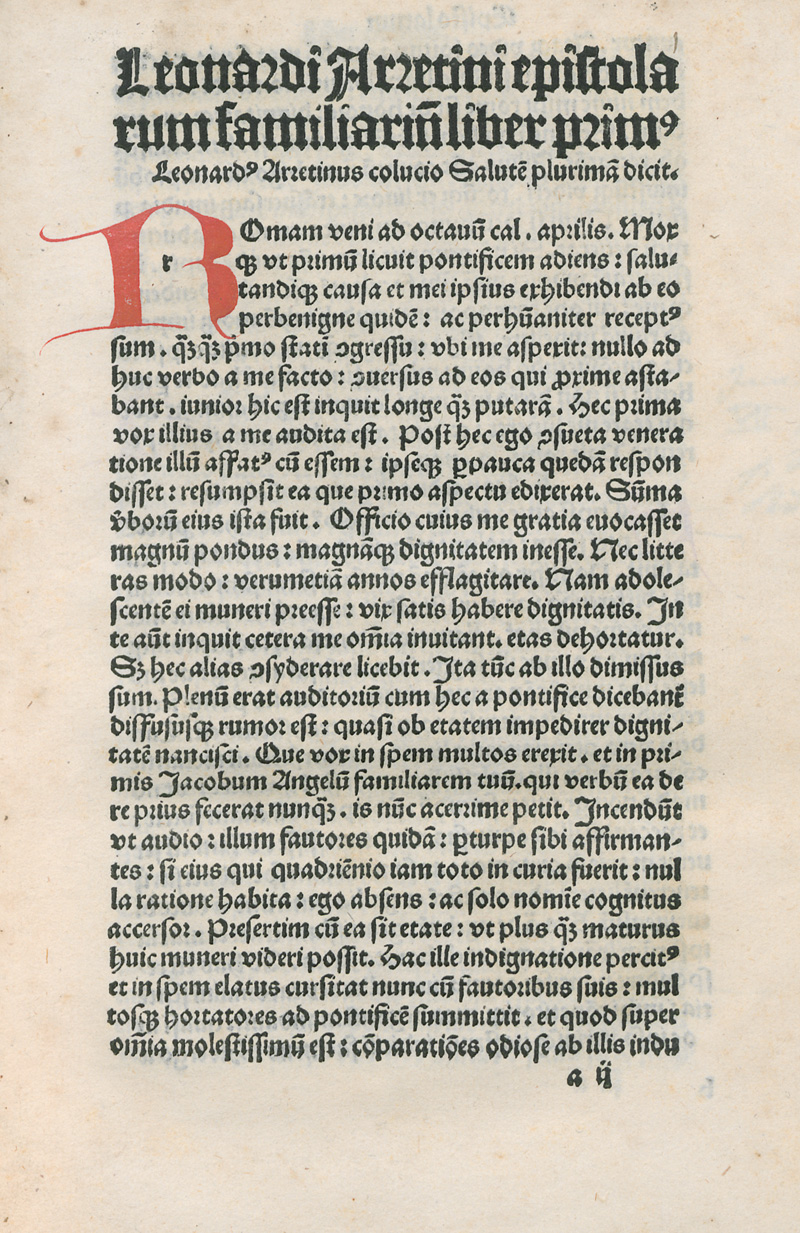 Leonardi Arretini epistola
rum familiariū liber prim⁹
Leonard⁹ Arretinus colucio Salutē plurimā dicit.
R
r
Omam veni ad octauū cal. aprilis. Mox
qꝫ vt primū licuit pontificem adiens : salu⸗
tandiqꝫ causa et mei ipsius exhibendi ab eo
perbenigne quidē : ac perhūaniter recept⁹
sum. q̄ꝫq̄ꝫ p̄mo stati ↄgressu : vbi me aspexit: nullo ad
huc verbo a me facto : ↄuersus ad eos qui ꝓxime asta⸗
bant. iunior hic est inquit longe q̄ꝫ putarā. Hec prima
vox illius a me audita est. Post hec ego ↄsueta venera
tione illū affat⁹ cū essem : ipseqꝫ ꝑpauca quedā respon
disset : resumpsit ea que primo aspectu edixerat. Sūma
v̄borū eius ista fuit. Officio cuius me gratia euocasset
magnū pondus : magnāqꝫ dignitatem inesse. Nec litte
ras modo : verumetiā annos efflagitare. Nam adole⸗
scentē ei muneri preesse : vix satis habere dignitatis. In
te aūt inquit cetera me om̄ia inuitant. etas dehortatur.
Sꝫ hec alias ↄsyderare licebit. Ita tūc ab illo dimissus
sum. Plenū erat auditoriū cum hec a pontifice dicebant̄
diffususqꝫ rumor est : quasi ob etatem impedirer digni⸗
tatē nancisci. Que vox in spem multos erexit. et in pri⸗
mis Jacobum Angelū familiarem tuū. qui verbū ea de
re prius fecerat nunq̄ꝫ. is nūc acerrime petit. Incendūt
vt audio : illum fautores quidā : ꝑturpe sibi affirman⸗
tes : si eius qui quadriēnio iam toto in curia fuerit : nul
la ratione habita : ego absens : ac solo nomīe cognitus
accersor. Presertim cū ea sit etate : vt plus q̄ꝫ maturus
huic muneri videri possit. Hac ille indignatione percit⁹
et in spem elatus cursitat nunc cū fautoribus suis : mul
tosqꝫ hortatores ad pontificē summittit. et quod super
om̄ia molestissimū est : cōparatiōes odiose ab illis indu
a ij